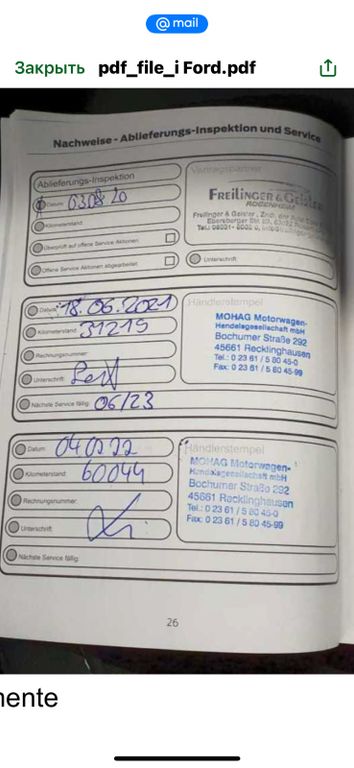 @mail
Закрыть pdf_file_i Ford.pdf
Nachweise - Ablieferungs-Inspektion und Service
Ablieferungs-Inspektion
Vertragspartner
Datum: 03.08.20
FREILINGER & GEISLER
ROSENHEIM
Kilometerstand:
Überprüft auf offene Service Aktionen
Offene Service Aktionen abgearbeitet
Unterschrift:
Datum: 18.06.2021
Händlerstempel
Kilometerstand: 31215
MOHAG Motorwagen-
Handelsgesellschaft mbH
Bochumer Straße 292
45661 Recklinghausen
Tel.: 0 23 61 / 5 80 45-0
Fax: 0 23 61 / 5 80 45-99
Rechnungsnummer:
Unterschrift:
Nächste Service fällig: 06/23
Datum:
Händlerstempel
Kilometerstand: 60044
MOHAG Motorwagen-
Handelsgesellschaft mbH
Bochumer Straße 292
45661 Recklinghausen
Tel.: 0 23 61 / 5 80 45-0
Fax: 0 23 61 / 5 80 45-99
Rechnungsnummer:
Unterschrift:
Nächste Service fällig:
26
mente